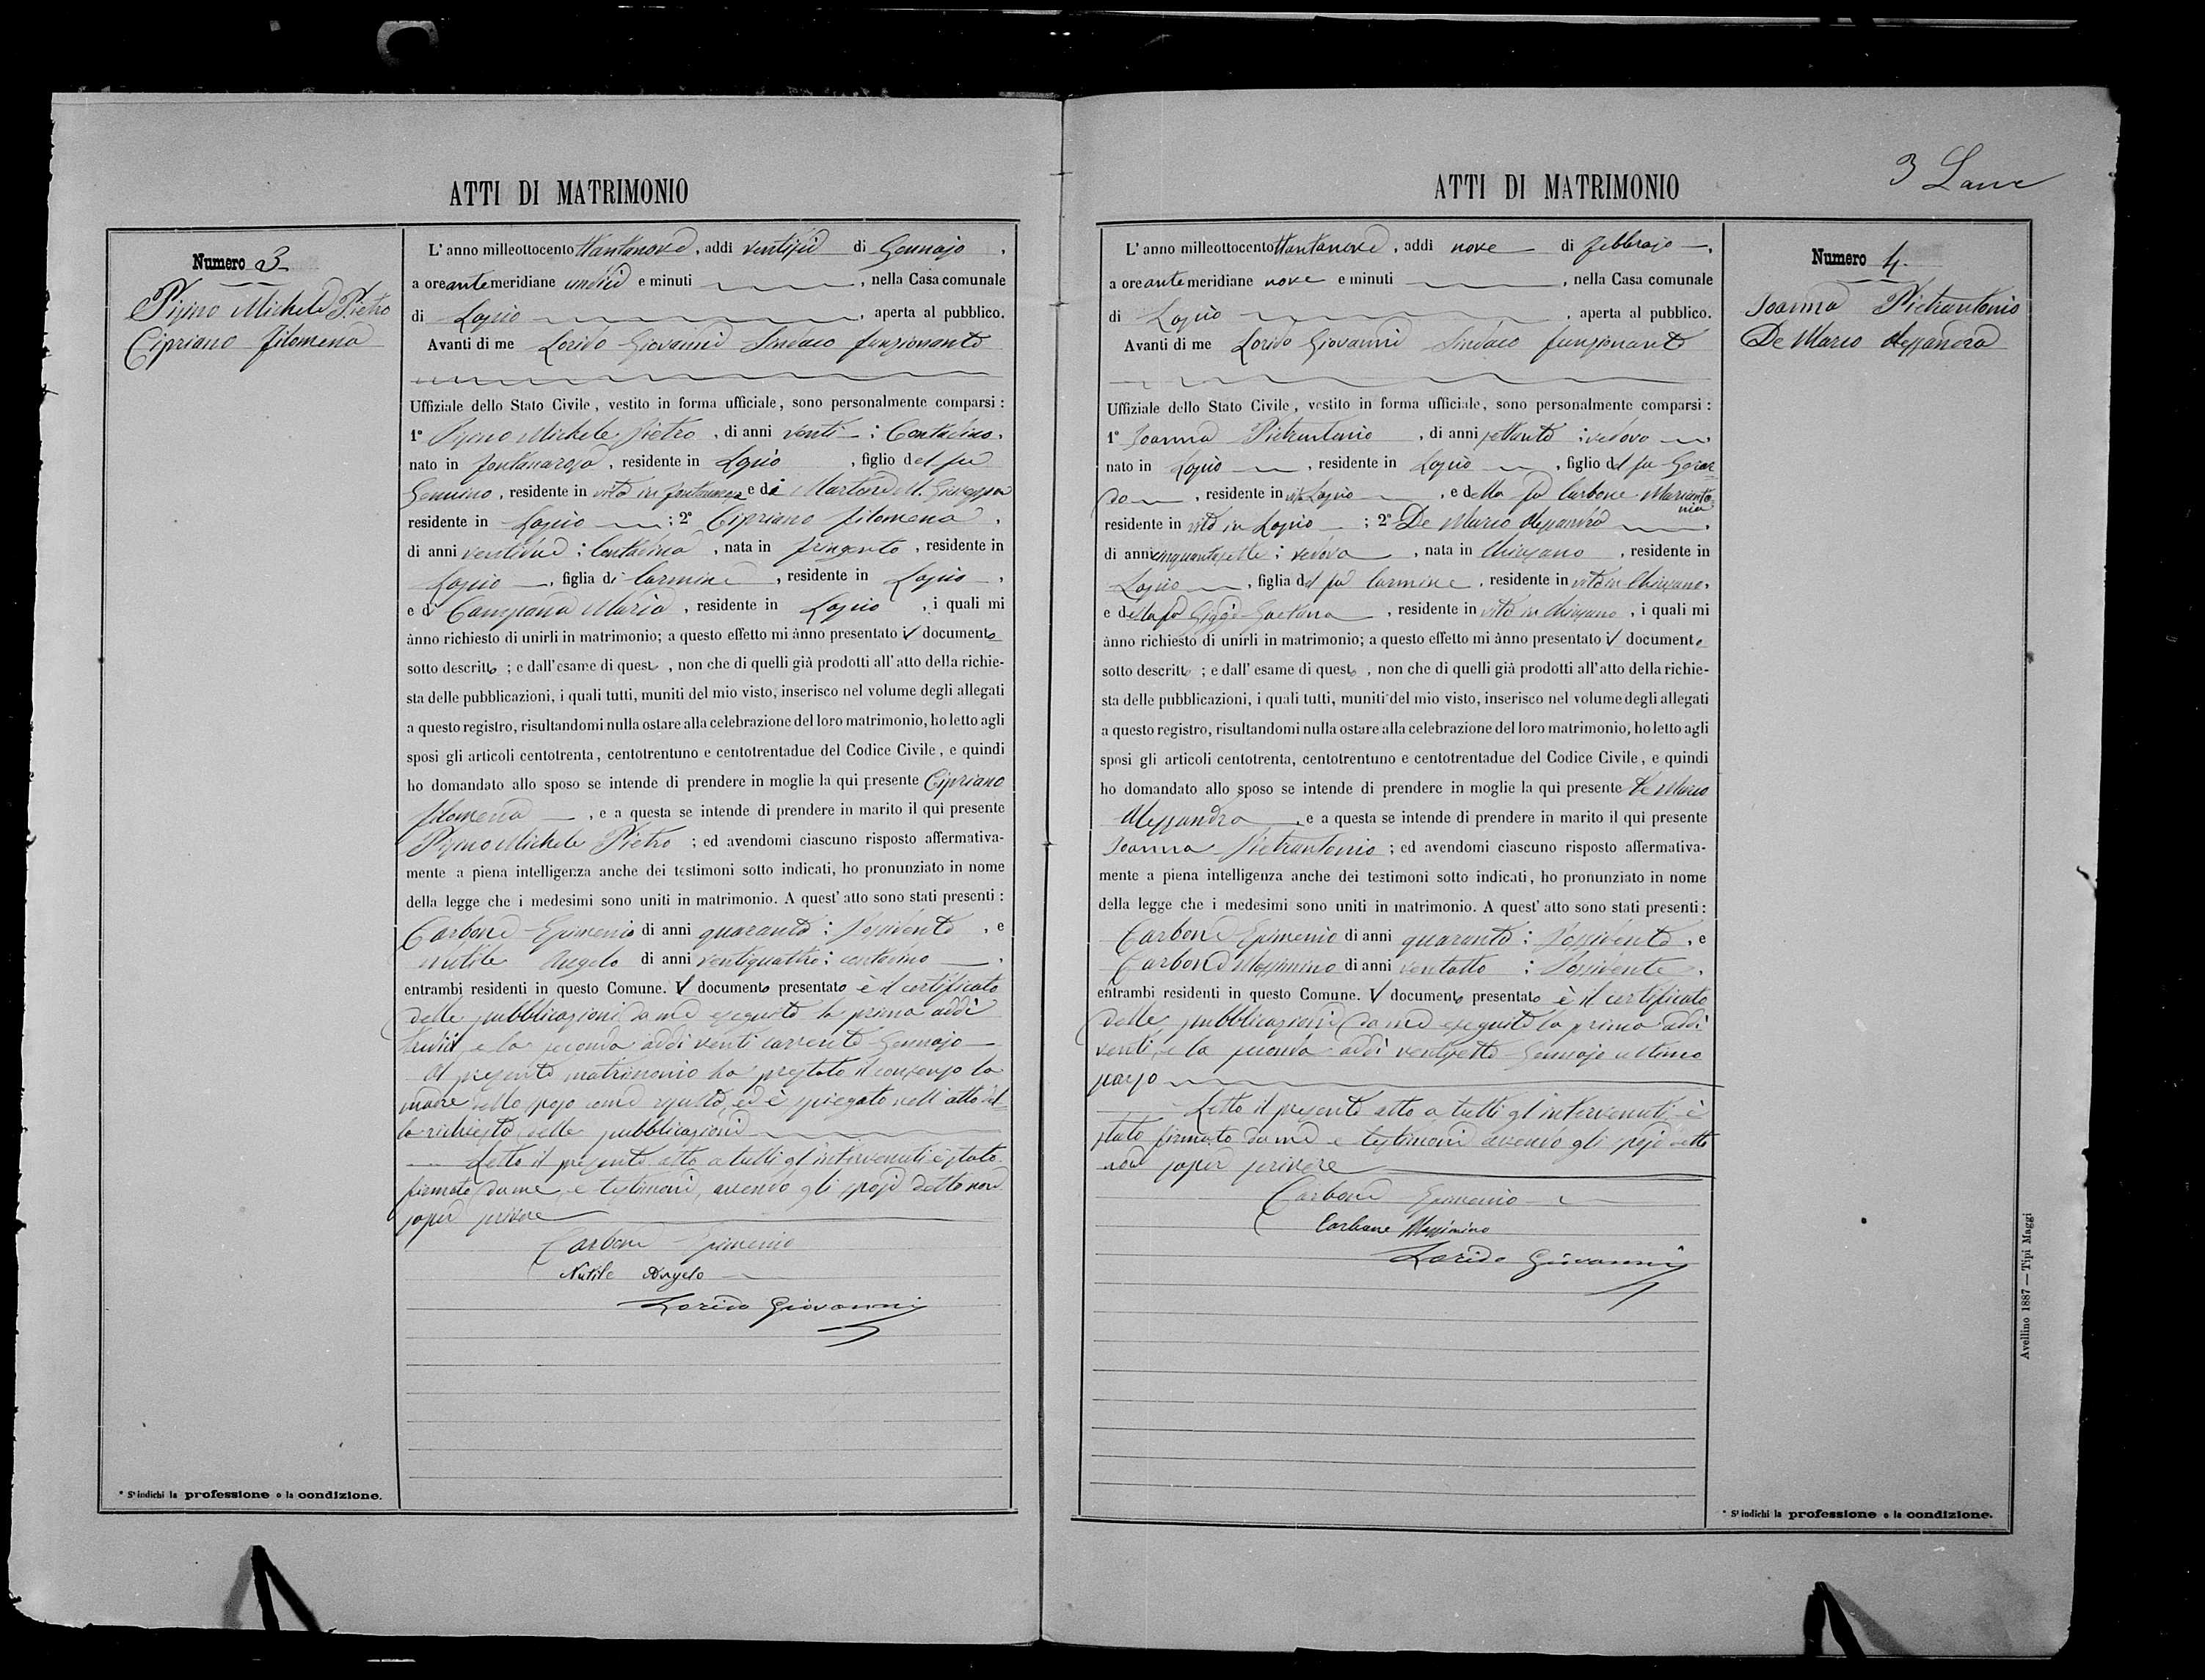 ATTI DI MATRIMONIO
Numero 3
Michele Pietro
Cipriano Filomena
L'anno milleottocento ottantanove, addi ventisei di Gennajo,
a ore antemeridiane undici e minuti, nella Casa comunale
di Lapio, aperta al pubblico.
Avanti di me Lorido Giovanni Sindaco funzionante
Uffiziale dello Stato Civile, vestito in forma ufficiale, sono personalmente comparsi:
1° Michele Pietro, di anni venti; Contadino,
nato in Fontanarosa, residente in Lapio, figlio del fu
Gennino, residente in vita in Fontanarosa e di M. Giuseppa
residente in Lapio; 2° Cipriano Filomena,
di anni ventidue; Contadina, nata in Frigento, residente in
Lapio, figlia di Carmine, residente in Lapio,
e di Campana Maria, residente in Lapio, i quali mi
ànno richiesto di unirli in matrimonio; a questo effetto mi ànno presentato il documento
sotto descritto; e dall'esame di questo, non che di quelli già prodotti all'atto della richie-
sta delle pubblicazioni, i quali tutti, muniti del mio visto, inserisco nel volume degli allegati
a questo registro, risultandomi nulla ostare alla celebrazione del loro matrimonio, ho letto agli
sposi gli articoli centotrenta, centotrentuno e centotrentadue del Codice Civile, e quindi
ho domandato allo sposo se intende di prendere in moglie la qui presente Cipriano
Filomena, e a questa se intende di prendere in marito il qui presente
Michele Pietro; ed avendomi ciascuno risposto affermativa-
mente a piena intelligenza anche dei testimoni sotto indicati, ho pronunziato in nome
della legge che i medesimi sono uniti in matrimonio. A quest'atto sono stati presenti:
Carbone Epimenio di anni quaranta; Possidente, e
Nutile Angelo di anni ventiquattro; contadino,
entrambi residenti in questo Comune. Il documento presentato è il certificato
delle pubblicazioni da me eseguite la prima addì
tredici, e la seconda addì venti corrente Gennajo
Al presente matrimonio ha prestato il consenso la
madre dello sposo come risulta, ed è spiegato nell'atto del-
la richiesta delle pubblicazioni
Letto il presente atto a tutti gl'intervenuti è stato
firmato da me, e testimoni, avendo gli sposi detto non
saper scrivere
Carbone Epimenio
Nutile Angelo
Lorido Giovanni
* S'indichi la professione o la condizione.
ATTI DI MATRIMONIO
3
Numero 4.
Ioanna Pietrantonio
De Marco Alessandra
L'anno milleottocento ottantanove, addi nove di Febbrajo,
a ore antemeridiane nove e minuti, nella Casa comunale
di Lapio, aperta al pubblico.
Avanti di me Lorido Giovanni Sindaco funzionante
Uffiziale dello Stato Civile, vestito in forma ufficiale, sono personalmente comparsi:
1° Ioanna Pietrantonio, di anni settanta; vedovo,
nato in Lapio, residente in Lapio, figlio del fu Gerar
do, residente in vita Lapio, e della fu Carbone Marianto
nia
residente in vita in Lapio; 2° De Marco Alessandra,
di anni cinquantasette; vedova, nata in Chiusano, residente in
Lapio, figlia del fu Carmine, residente in vita in Chiusano,
e della fu Gaetana, residente in vita in Chiusano, i quali mi
ànno richiesto di unirli in matrimonio; a questo effetto mi ànno presentato il documento
sotto descritto; e dall'esame di questo, non che di quelli già prodotti all'atto della richie-
sta delle pubblicazioni, i quali tutti, muniti del mio visto, inserisco nel volume degli allegati
a questo registro, risultandomi nulla ostare alla celebrazione del loro matrimonio, ho letto agli
sposi gli articoli centotrenta, centotrentuno e centotrentadue del Codice Civile, e quindi
ho domandato allo sposo se intende di prendere in moglie la qui presente De Marco
Alessandra, e a questa se intende di prendere in marito il qui presente
Ioanna Pietrantonio; ed avendomi ciascuno risposto affermativa-
mente a piena intelligenza anche dei testimoni sotto indicati, ho pronunziato in nome
della legge che i medesimi sono uniti in matrimonio. A quest'atto sono stati presenti:
Carbone Epimenio di anni quaranta; Possidente, e
Carbone Massimino di anni ventotto; Possidente,
entrambi residenti in questo Comune. Il documento presentato è il certificato
delle pubblicazioni da me eseguite la prima addì
venti, e la seconda addì ventisette Gennajo ultimo
scorso
Letto il presente atto a tutti gl'intervenuti, è
stato firmato da me e testimoni avendo gli sposi detto
non saper scrivere
Carbone Epimenio
Carbone Massimino
Lorido Giovanni
* S'indichi la professione o la condizione.
Avellino 1887 — Tipi Maggi